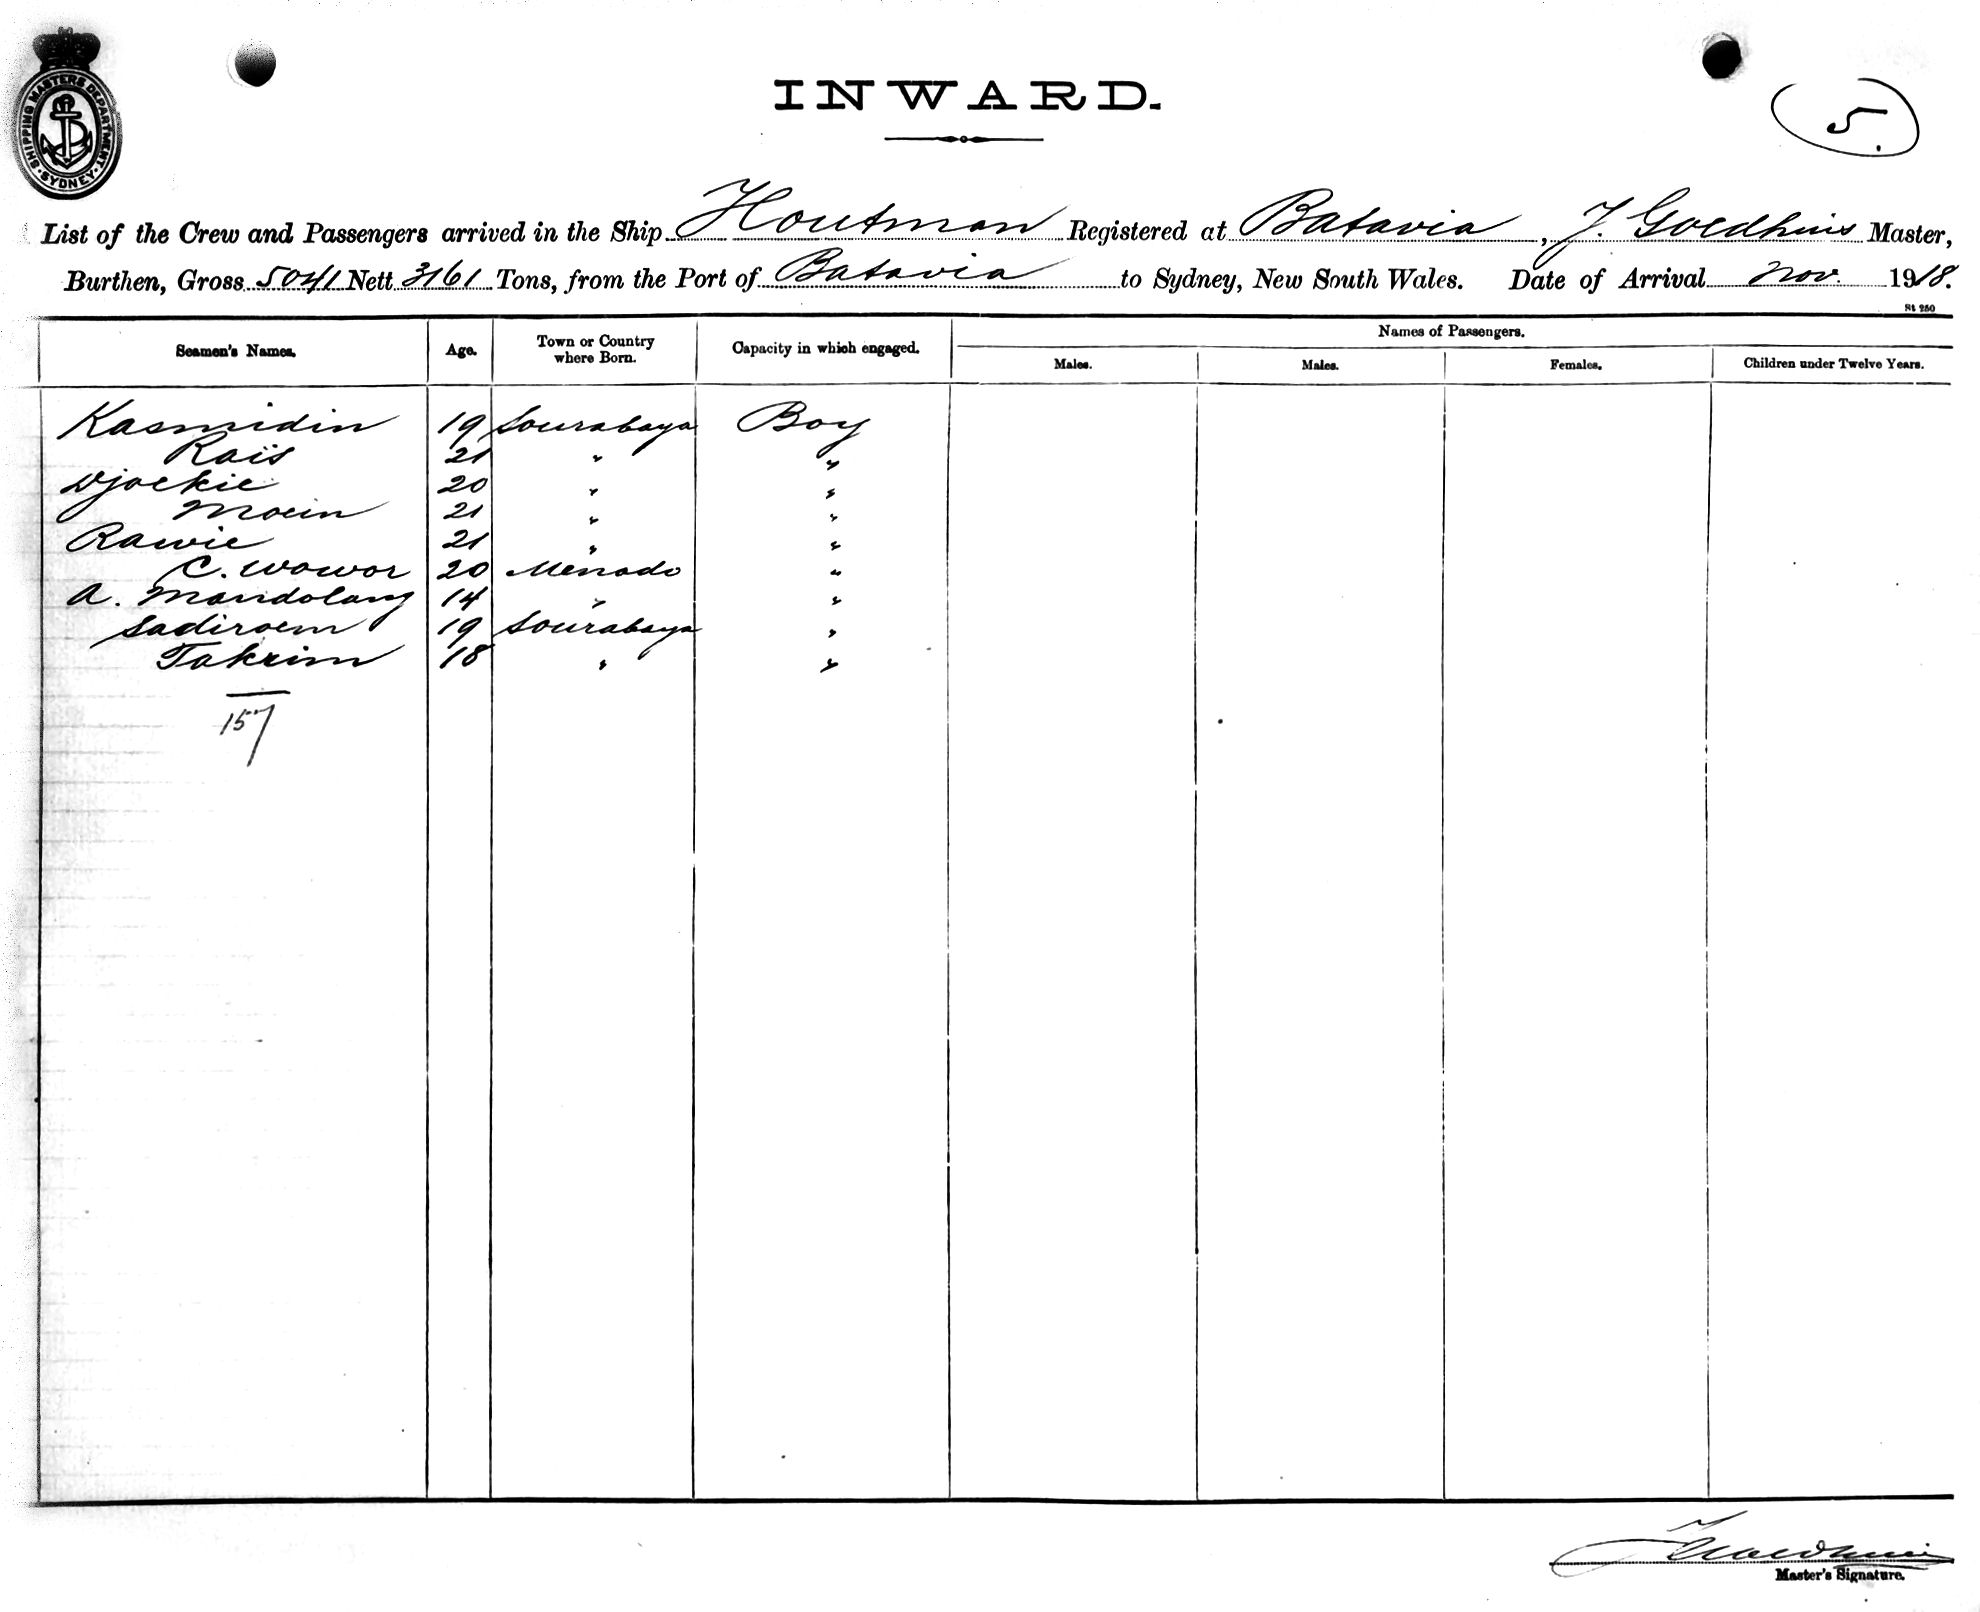 SHIPPING MASTERS DEPARTMENT
SYDNEY
INWARD.
5.
List of the Crew and Passengers arrived in the Ship Houtman Registered at Batavia, J. Goedhuis Master,
Burthen, Gross 5041 Nett 3161 Tons, from the Port of Batavia to Sydney, New South Wales. Date of Arrival Nov. 1918.
St 250
Seamen's Names. Age. Town or Country where Born. Capacity in which engaged. Names of Passengers.
Males. Males. Females. Children under Twelve Years.
Kasmidin 19 Sourabaya Boy
Raïs 21 " "
Djoekie 20 " "
Moein 21 " "
Rawie 21 " "
C. Wowor 20 Menado "
A. Mandolang 14 " "
Sadiroem 19 Sourabaya "
Takrim 18 " "
157
J Goedhuis
Master's Signature.